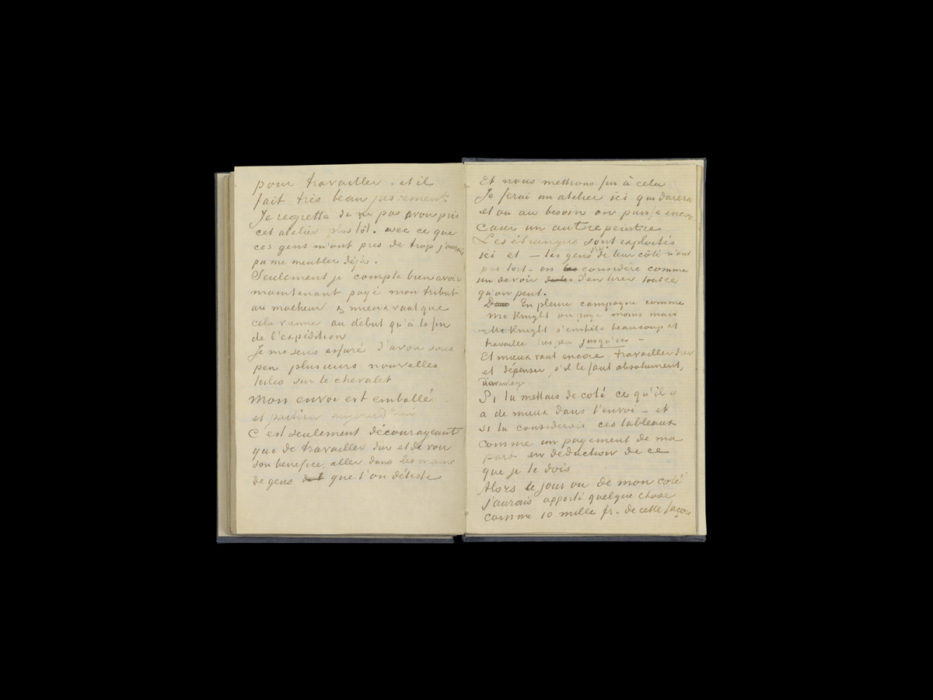 pour travailler. et il
fait très beau justement
Je regrette de ne pas avoir pris
cet atelier plus tôt. avec ce que
ces gens m'ont pris de trop j'aurais
pu me meubler déjà.
Seulement je compte bien avoir
maintenant payé mon tribut
au malheur & mieux vaut que
cela vienne au début qu'à la fin
de l'expédition
Je me suis assuré d'avoir sous
peu plusieurs nouvelles
toiles sur le chevalet
Mon envoi est emballé
et partira aujourd'hui
C'est seulement décourageant
que de travailler dur et de voir
son benefice aller dans les mains
de gens que l'on déteste
Et nous mettrons fin à cela
Je ferai un atelier ici qui durera
et ou au besoin on puisse encore
caser un autre peintre
Les étrangers sont exploités
ici et – les gens de leur côté n'ont
pas tort. on considère comme
un devoir d'en tirer tout ce
qu'on peut.
En pleine campagne comme
McKnight on paye moins mais
McKnight s'embête beaucoup et
travaille très peu jusqu'ici –
Et mieux vaut encore travailler dur
et dépenser, s'il le faut absolument,
davantage.
Si tu mettais de coté ce qu'il y
a de mieux dans l'envoi – et
si tu considerais ces tableaux
comme un payement de ma
part en déduction de ce
que je te dois
Alors le jour ou de mon coté
j'aurais apporté quelque chose
comme 10 mille fr. de cette façon